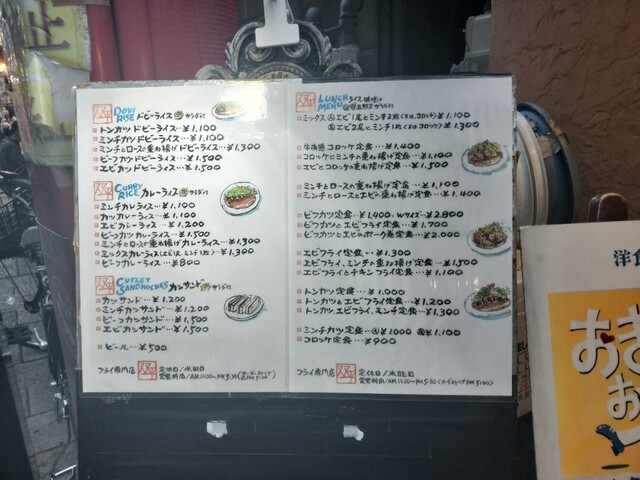 DOVI RISE ドビーライス サラダ付
トンカツドビーライス…¥1,100
ミンチカツドビーライス…¥1,100
ミンチとロースの重ね揚げドビーライス…¥1,300
ビーフカツドビーライス…¥1,500
エビカツドビーライス…¥1,500
CURRY RICE カレーライス サラダ付
ミンチカレーライス…¥1,100
カツカレーライス…¥1,100
エビカレーライス…¥1,200
ビーフカツカレーライス…¥1,500
ミンチとロースの重ね揚げカレーライス…¥1,300
ミックスカレーライス ¥1,300
ビーフカレーライス…¥800
CUTLET SANDWICHES カツサンド サラダ付
カツサンド…¥1,200
ミンチカツサンド…¥1,200
ビーフカツサンド…¥1,500
エビカツサンド…¥1,500
ビール…¥500
フライ専門店
定休日/水曜日
営業時間/AM11:00~PM5:30
LUNCH MENU ライス 味噌汁 サラダ付
ミックス Ⓐエビ1尾とミンチ2枚(又はコロッケ) ¥1,100
Ⓑエビ2尾とミンチ1枚(又はコロッケ) ¥1,300
コロッケ定食…¥1,400
コロッケとミンチの重ね揚げ定食…¥1,100
エビとコロッケの重ね揚げ定食…¥1,500
ミンチとロースの重ね揚げ定食…¥1,100
ミンチとロースとエビの重ね揚げ定食…¥1,400
ビフカツ定食…¥1,400、Wサイズ…¥2,800
ビフカツとエビフライ定食…¥1,700
ビフカツとエビのポーク巻定食…¥2,000
エビフライ定食…¥1,300
エビフライ、ミンチの重ね揚げ定食…¥1,500
エビフライとチキンフライ定食…¥1,100
トンカツ定食…¥1,000
トンカツとエビフライ定食…¥1,200
トンカツ、エビフライ、ミンチ定食…¥1,300
ミンチカツ定食…Ⓐ¥1,000 Ⓑ¥1,100
コロッケ定食…¥900
フライ専門店
定休日/水曜日
営業時間/AM11:00~PM5:30
洋食
おき
お